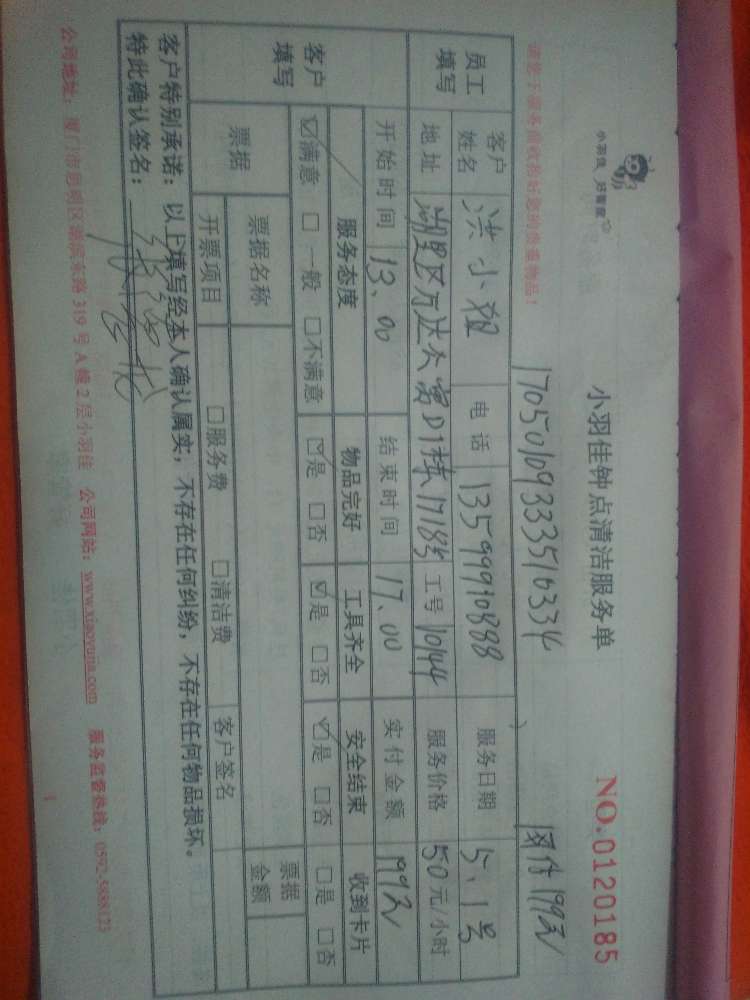 小羽佳 好管家
小羽佳钟点清洁服务单
NO.0120185
请您于服务前收拾好您的贵重物品！
17050109333516334
网付199元
员工填写
客户姓名 洪小姐 电话 13599910888 服务日期 5.1号
地址 湖里区万达公寓D1栋1718室 工号 10144 服务价格 50元/小时
开始时间 13.00 结束时间 17.00 实付金额 199元
客户填写
服务态度 物品完好 工具齐全 安全结束 收到卡片
☑满意 □一般 □不满意 ☑是 □否 ☑是 □否 ☑是 □否 □是 □否
票据 票据名称 票据金额
开票项目 □服务费 □清洁费 客户签名
客户特别承诺：以上填写经本人确认属实，不存在任何纠纷，不存在任何物品损坏。
特此确认签名：
公司地址：厦门市思明区湖滨东路319号A幢2层小羽佳 公司网站：www.xiaoyujia.com 服务监督热线：0592-5888123